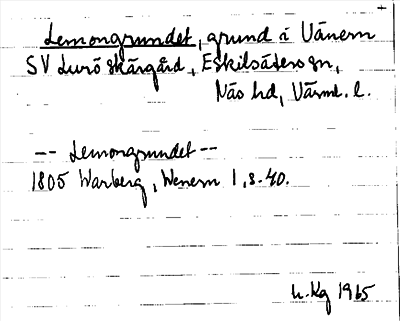 Lemongrundet, grund i Vänern
SV Lurö skärgård, Eskilsäters sn,
Näs hd, Värml. l.
-- Lemongrundet --
1805 Warberg, Wenern 1, s. 40.
h. Kg 1965